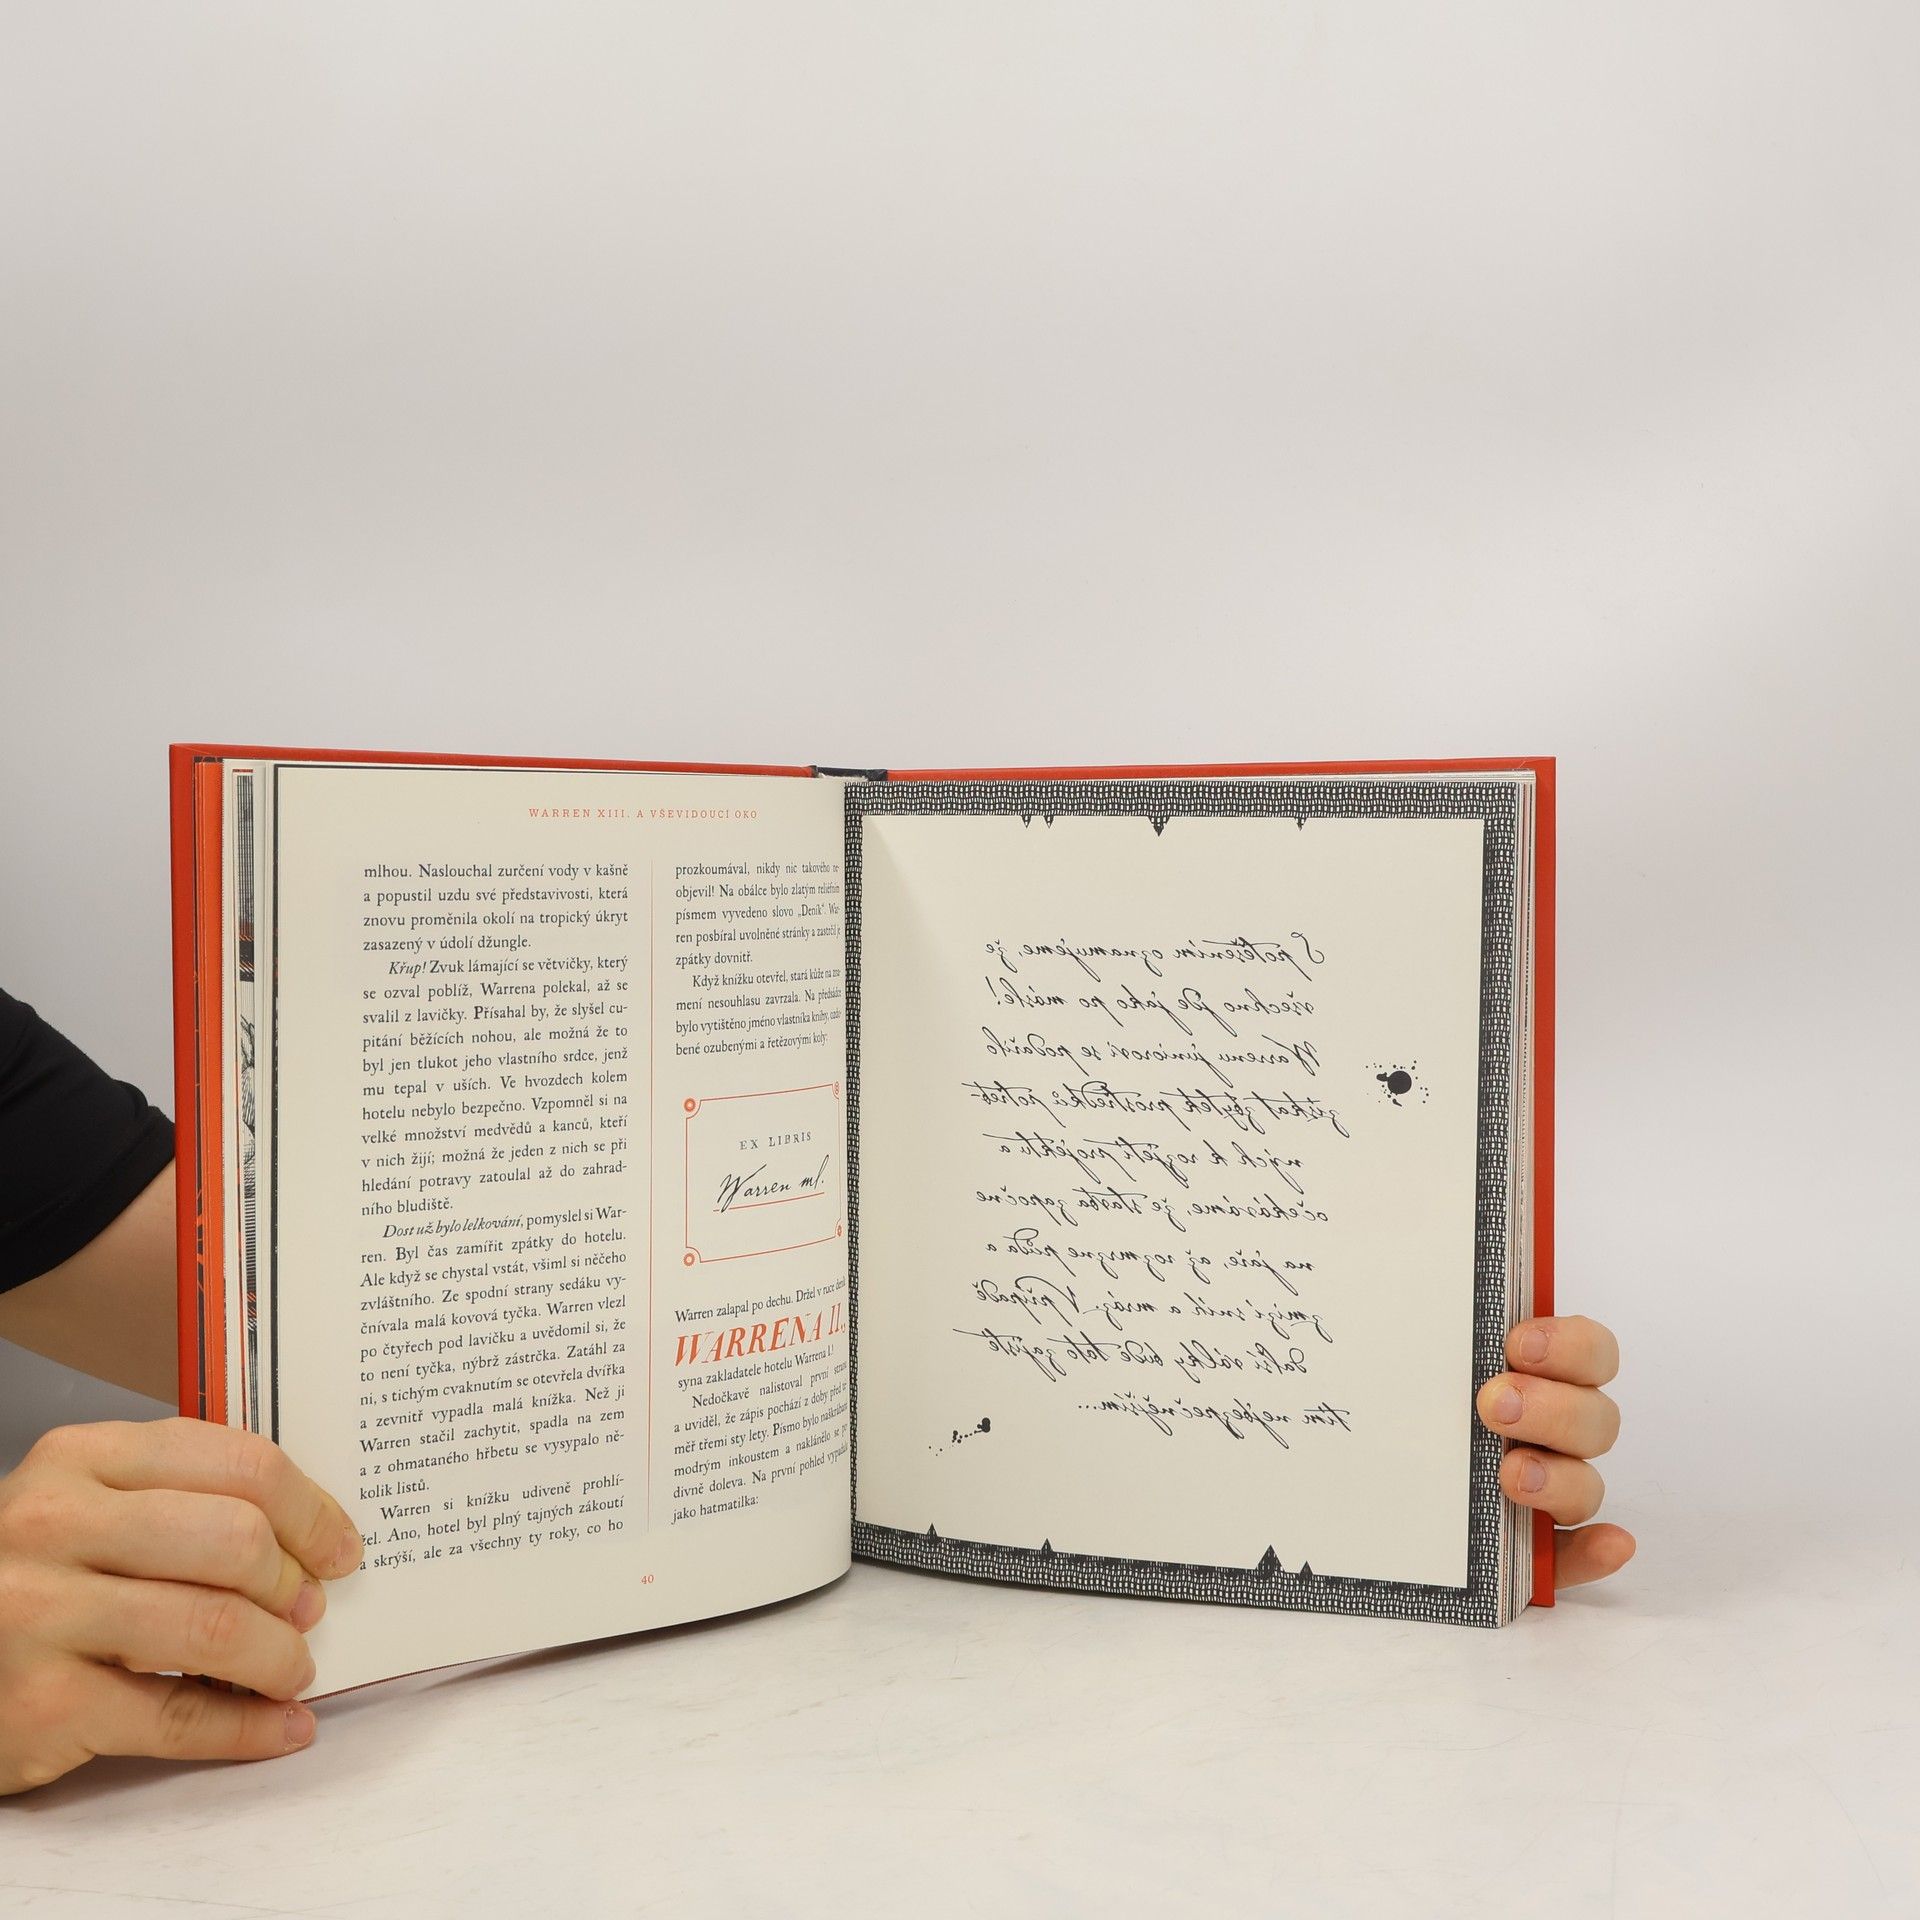 WARREN XIII. A VŠEVIDOUCÍ OKO
mlhou. Naslouchal zurčení vody v kašně
a popustil uzdu své představivosti, která
znovu proměnila okolí na tropický úkryt
zasazený v údolí džungle.
Křup! Zvuk lámající se větvičky, který
se ozval poblíž, Warrena polekal, až se
svalil z lavičky. Přísahal by, že slyšel cu-
pitání běžících nohou, ale možná že to
byl jen tlukot jeho vlastního srdce, jenž
mu tepal v uších. Ve hvozdech kolem
hotelu nebylo bezpečno. Vzpomněl si na
velké množství medvědů a kanců, kteří
v nich žijí; možná že jeden z nich se při
hledání potravy zatoulal až do zahrad-
ního bludiště.
Dost už bylo lelkování, pomyslel si War-
ren. Byl čas zamířit zpátky do hotelu.
Ale když se chystal vstát, všiml si něčeho
zvláštního. Ze spodní strany sedáku vy-
čnívala malá kovová tyčka. Warren vlezl
po čtyřech pod lavičku a uvědomil si, že
to není tyčka, nýbrž zástrčka. Zatáhl za
ni, s tichým cvaknutím se otevřela dvířka
a zevnitř vypadla malá knížka. Než ji
Warren stačil zachytit, spadla na zem
a z ohmataného hřbetu se vysypalo ně-
kolik listů.
Warren si knížku udiveně prohlí-
žel. Ano, hotel byl plný tajných zákoutí
a skrýší, ale za všechny ty roky, co ho
prozkoumával, nikdy nic takového ne-
objevil! Na obálce bylo zlatým reliéfním
písmem vyvedeno slovo „Deník“. War-
ren posbíral uvolněné stránky a zastrčil je
zpátky dovnitř.
Když knížku otevřel, stará kůže na zna-
mení nesouhlasu zavrzala. Na předsádce
bylo vytištěno jméno vlastníka knihy, ozdo-
bené ozubenými a řetězovými koly:
EX LIBRIS
Warren ml.
Warren zalapal po dechu. Držel v ruce deník
WARRENA II.,
syna zakladatele hotelu Warrena I.!
Nedočkavě nalistoval první stranu
a uviděl, že zápis pochází z doby před té-
měř třemi sty lety. Písmo bylo naškrábané
modrým inkoustem a naklánělo se po-
divně doleva. Na první pohled vypadalo
jako hatmatilka:
40
S potěšením oznamujeme, že
všechno jde jako po másle!
Warrenu juniorovi se podařilo
získat zbytek prostředků potřeb-
ných k rozjetí projektu a
očekáváme, že stavba započne
na jaře, až rozmrzne půda a
zmizí sníh a mráz. V případě
další války bude toto zajisté
tím nejbezpečnějším...